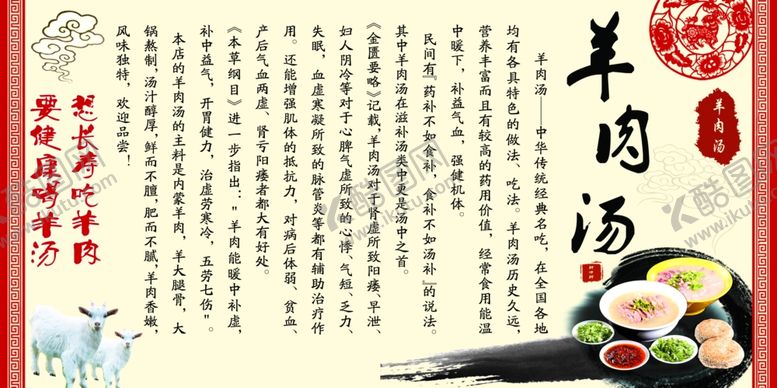 羊肉汤
羊肉汤
羊肉汤——中华传统经典名吃，在全国各地
均有各具特色的做法、吃法。羊肉汤历史久远，
营养丰富而且有较高的药用价值，经常食用能温
中暖下，补益气血，强健机体。
民间有『药补不如食补，食补不如汤补』的说法。
其中羊肉汤在滋补汤类中更是汤中之首。
《金匮要略》记载，羊肉汤对于肾虚所致阳痿、早泄、
妇人阴冷等对于心脾气虚所致的心悸、气短、乏力、
失眠，血虚寒凝所致的脉管炎等都有辅助治疗作
用。还能增强肌体的抵抗力，对病后体弱、贫血、
产后气血两虚、肾亏阳痿者都大有好处。
《本草纲目》进一步指出："羊肉能暖中补虚，
补中益气，开胃健力，治虚劳寒冷，五劳七伤"。
本店的羊肉汤的主料是内蒙羊肉，羊大腿骨，大
锅熬制，汤汁醇厚，鲜而不膻，肥而不腻，羊肉香嫩，
风味独特，欢迎品尝！
想长寿吃羊肉
要健康喝羊汤
酷图网
www.ikutu.com
酷图网
www.ikutu.com